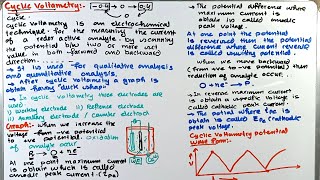 Cyclic Voltammetry:
-0.4 → 0.4
Cycle.
cyclic voltammetry is an electrochemical
technique for the measuring the current
of a redox active analyte by scanning
the potential b/w two or more set
value in both forward and backward
direction.
→ It is used for qualitative analysis
and quantitative analysis.
→ After cyclic voltammetry a graph is
obtain having "duck shape"
→ In cyclic voltammetry three electrodes are
used
i) working electrode ii) Reference electrode
iii) Auxiliary electrode / counter electrode
Graph:- when we increase the
voltage from -ve potential
to +ve potential oxidation
of analyte occur.
R → O + ne⁻
At one point maximum current
is obtain which is called
anodic peak current (ipa)
→ The potential difference where
maximum current
obtain is called anodic
peak voltage.
At one point the potential
is reversed then the potential
difference where current reversed
is called switching potential.
when we move backward
(from +ve to -ve potential) then
reduction of analyte occur.
O + ne⁻ → R
→ In reverse maximum current
is obtain is called
cathodic peak current.
→ The potential where ipc is
obtain is called Epc (cathodic
peak voltage)
Cyclic voltammetry potential
wave form: